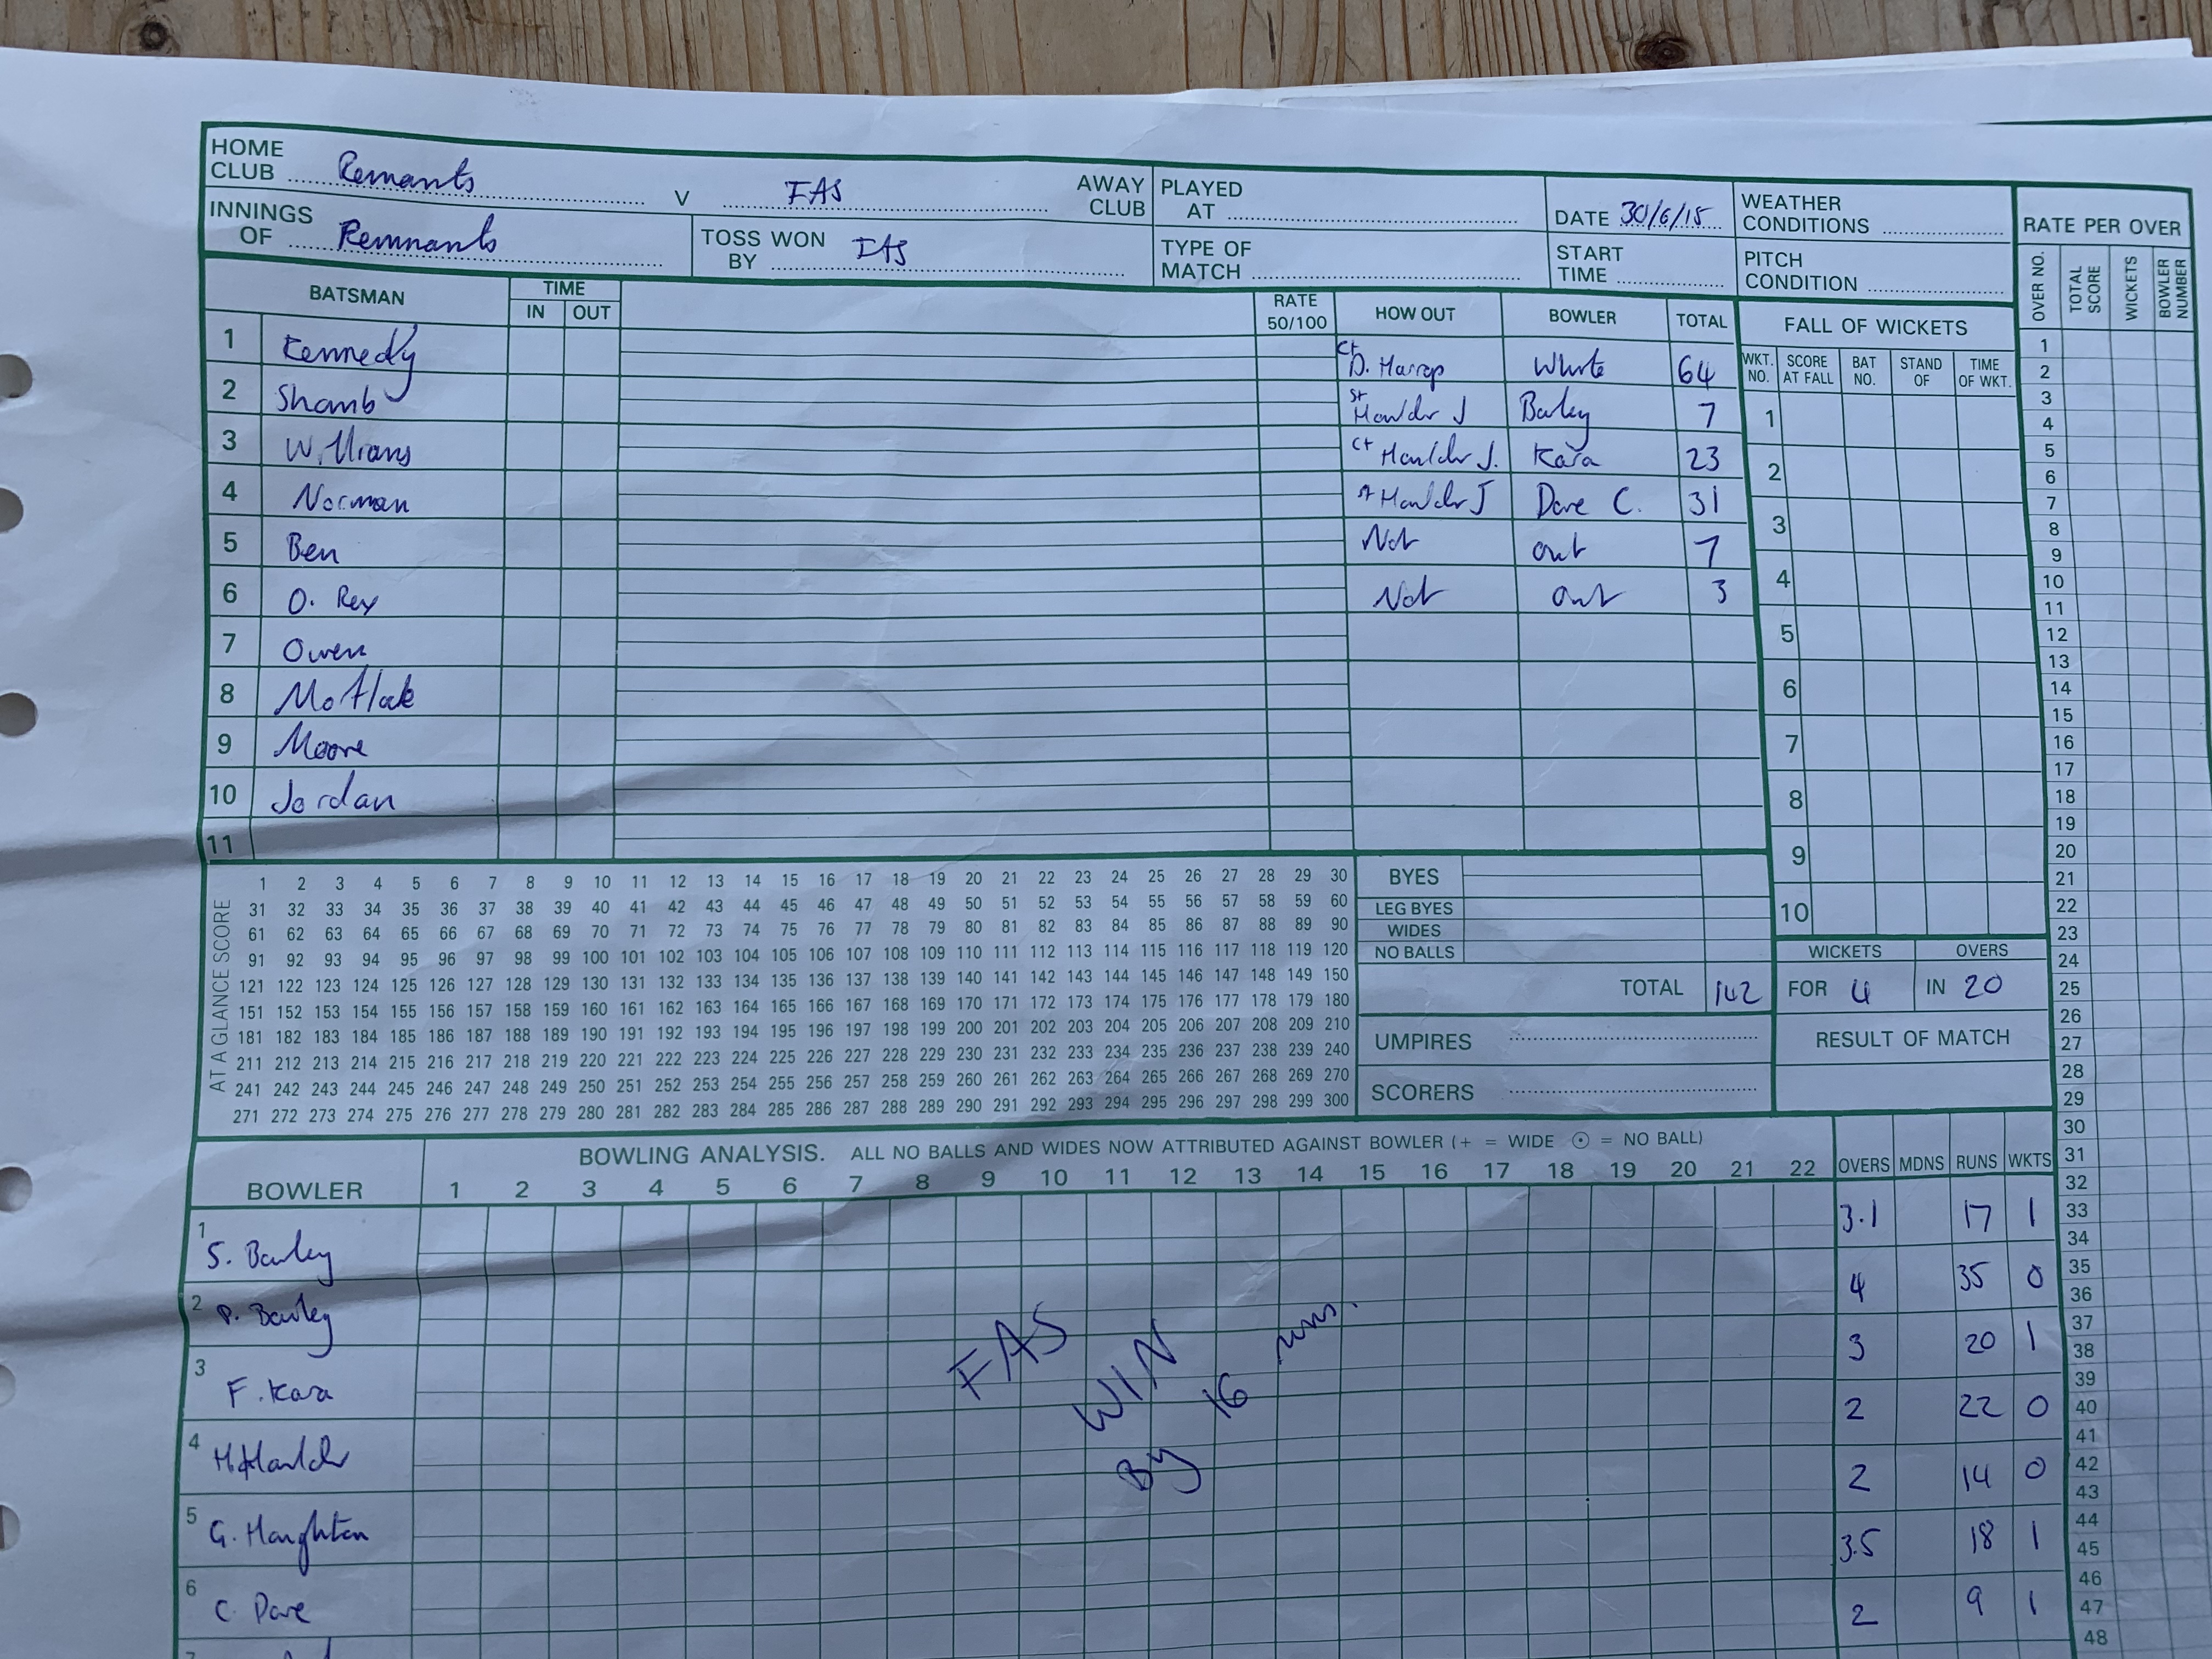 HOME CLUB Remants V FAS AWAY CLUB
PLAYED AT
DATE 30/6/15
WEATHER CONDITIONS
INNINGS OF Remnants
TOSS WON BY FAS
TYPE OF MATCH
START TIME
PITCH CONDITION
RATE PER OVER
OVER NO. TOTAL SCORE WICKETS BOWLER NUMBER
BATSMAN TIME IN OUT RATE 50/100 HOW OUT BOWLER TOTAL
FALL OF WICKETS
WKT. NO. SCORE AT FALL BAT NO. STAND OF TIME OF WKT.
1 Kennedy Ct D. Harrop White 64
2 Shamb St Houlder J Barley 7
3 Williams Ct Houlder J. Kara 23
4 Norman Houlder J Dare C. 31
5 Ben Not out 7
6 O. Rex Not out 3
7 Owen
8 Motlock
9 Moore
10 Jordan
11
1
2
3
4
5
6
7
8
9
10
AT A GLANCE SCORE
1 2 3 4 5 6 7 8 9 10 11 12 13 14 15 16 17 18 19 20 21 22 23 24 25 26 27 28 29 30
31 32 33 34 35 36 37 38 39 40 41 42 43 44 45 46 47 48 49 50 51 52 53 54 55 56 57 58 59 60
61 62 63 64 65 66 67 68 69 70 71 72 73 74 75 76 77 78 79 80 81 82 83 84 85 86 87 88 89 90
91 92 93 94 95 96 97 98 99 100 101 102 103 104 105 106 107 108 109 110 111 112 113 114 115 116 117 118 119 120
121 122 123 124 125 126 127 128 129 130 131 132 133 134 135 136 137 138 139 140 141 142 143 144 145 146 147 148 149 150
151 152 153 154 155 156 157 158 159 160 161 162 163 164 165 166 167 168 169 170 171 172 173 174 175 176 177 178 179 180
181 182 183 184 185 186 187 188 189 190 191 192 193 194 195 196 197 198 199 200 201 202 203 204 205 206 207 208 209 210
211 212 213 214 215 216 217 218 219 220 221 222 223 224 225 226 227 228 229 230 231 232 233 234 235 236 237 238 239 240
241 242 243 244 245 246 247 248 249 250 251 252 253 254 255 256 257 258 259 260 261 262 263 264 265 266 267 268 269 270
271 272 273 274 275 276 277 278 279 280 281 282 283 284 285 286 287 288 289 290 291 292 293 294 295 296 297 298 299 300
BYES
LEG BYES
WIDES
NO BALLS
TOTAL 142
WICKETS OVERS
FOR 4 IN 20
UMPIRES
SCORERS
RESULT OF MATCH
BOWLING ANALYSIS. ALL NO BALLS AND WIDES NOW ATTRIBUTED AGAINST BOWLER (+ = WIDE ⊙ = NO BALL)
BOWLER 1 2 3 4 5 6 7 8 9 10 11 12 13 14 15 16 17 18 19 20 21 22 OVERS MDNS RUNS WKTS
1 S. Barley 3.1 17 1
2 P. Barley 4 35 0
3 F. Kara 3 20 1
4 H. Houlder 2 22 0
5 G. Houghton 2 14 0
6 C. Dare 3.5 18 1
7 2 9 1
FAS
WIN
By 16 runs.
1
2
3
4
5
6
7
8
9
10
11
12
13
14
15
16
17
18
19
20
21
22
23
24
25
26
27
28
29
30
31
32
33
34
35
36
37
38
39
40
41
42
43
44
45
46
47
48